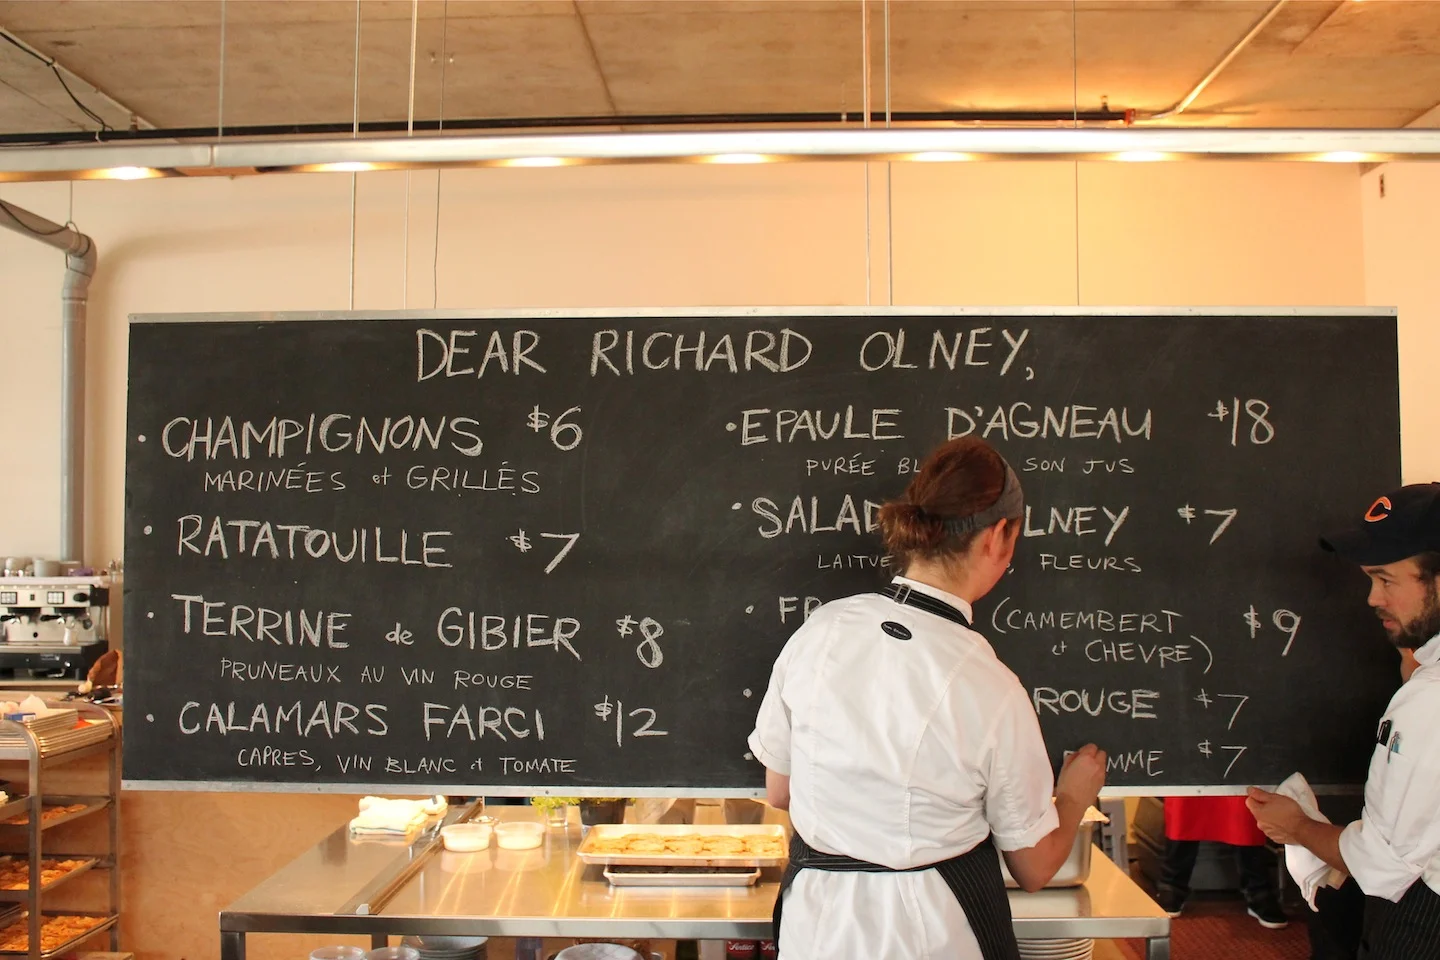 DEAR RICHARD OLNEY,
• CHAMPIGNONS $6
MARINÉES et GRILLÉS
• RATATOUILLE $7
• TERRINE de GIBIER $8
PRUNEAUX AU VIN ROUGE
• CALAMARS FARCI $12
CAPRES, VIN BLANC et TOMATE
• EPAULE D'AGNEAU $18
PURÉE SON JUS
• $7
LAITUE FLEURS
• (CAMEMBERT $9
et CHEVRE)
• ROUGE $7
• $7
C